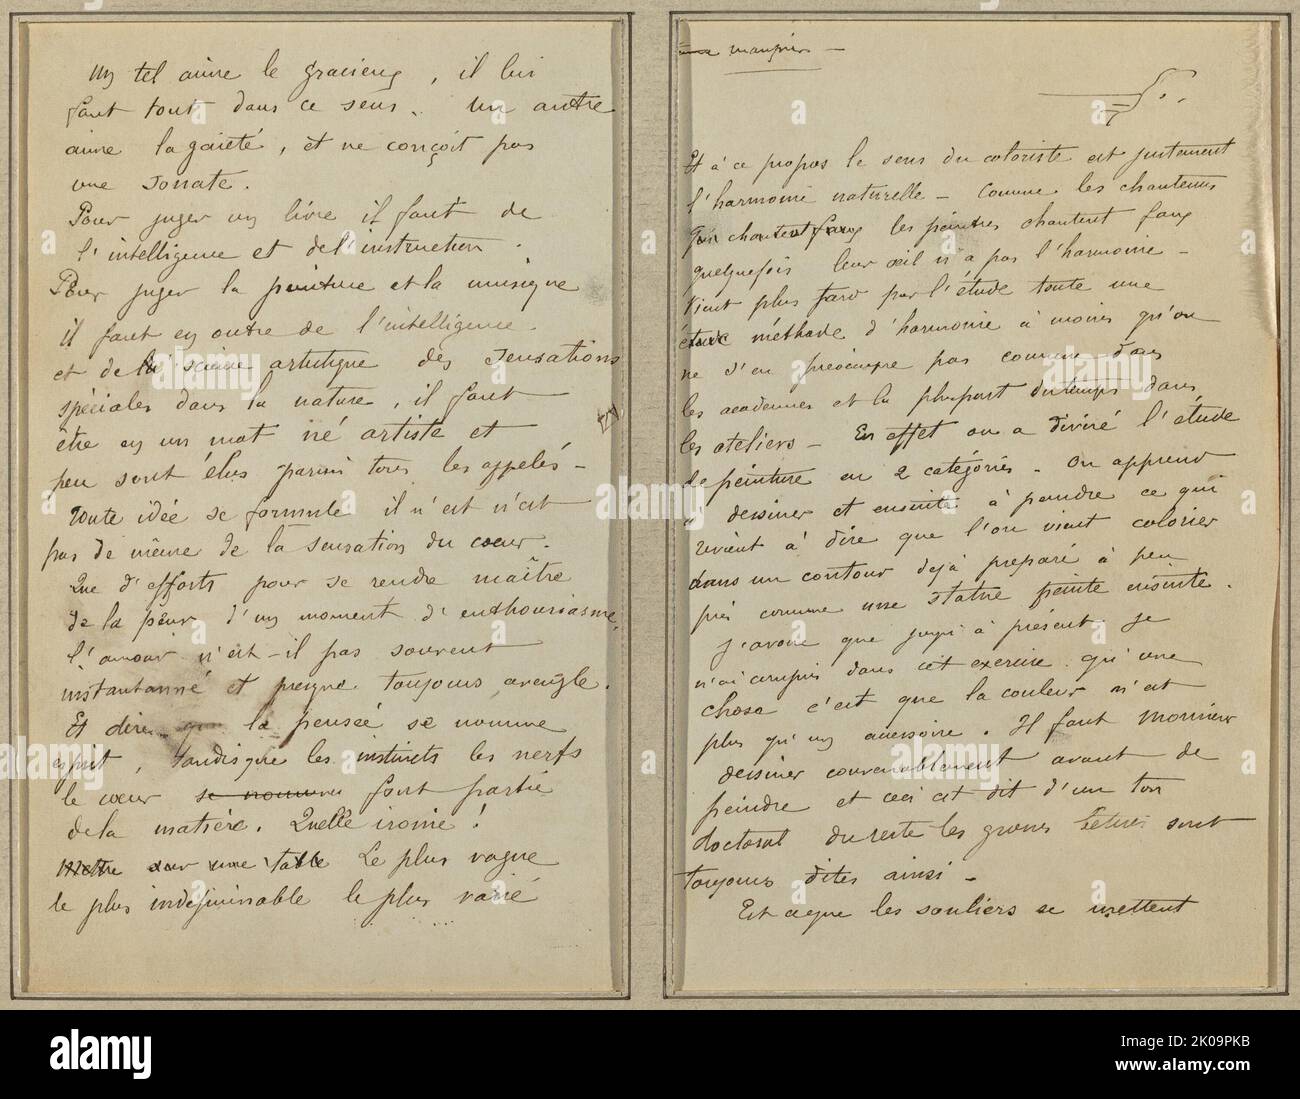 Un tel aime le gracieux, il lui
faut tout dans ce sens. Un autre
aime la gaieté, et ne conçoit pas
une sonate.
Pour juger un livre il faut de
l'intelligence et de l'instruction.
Pour juger la peinture et la musique
il faut en outre de l'intelligence
et de la science artistique des sensations
spéciales dans la nature, il faut
être en un mot né artiste et
peu sont élus parmi tous les appelés -
Toute idée se formule il n'est n'est
pas de même de la sensation du cœur.
Que d'efforts pour se rendre maître
de la peur d'un moment d'enthousiasme,
L'amour n'est-il pas souvent
instantanné et presque toujours aveugle.
Et dire que la pensée se nomme
esprit, tandis que les instincts les nerfs
le cœur se nomme font partie
de la matière. Quelle ironie!
Mettre sur une table Le plus vague
le plus indéfinissable le plus varié
Et à ce propos le sens du coloriste est justement
l'harmonie naturelle - Comme les chanteurs
Qui chantent faux les peintres chantent faux
quelquefois leur œil n'a pas l'harmonie -
Vient plus tard par l'étude toute une
étude méthode d'harmonie à moins qu'on
ne s'en préoccupe pas comme dans
les académies et la plupart du temps dans
les ateliers - En effet on a divisé l'étude
de peinture en 2 catégories - On apprend
à dessiner et ensuite à peindre ce qui
revient à dire que l'on vient colorier
dans un contour déjà préparé à peu
près comme une statue peinte ensuite.
J'avoue que jusqu'à présent je
n'ai compris dans cet exercice qu'une
chose c'est que la couleur n'est
plus qu'un accessoire. Il faut Monsieur
dessiner convenablement avant de
peindre et ceci est dit d'un ton
doctoral du reste les grosses bêtises sont
toujours dites ainsi -
Est ce que les souliers se mettent
alamy
Image ID: 2K09PKB
www.alamy.com